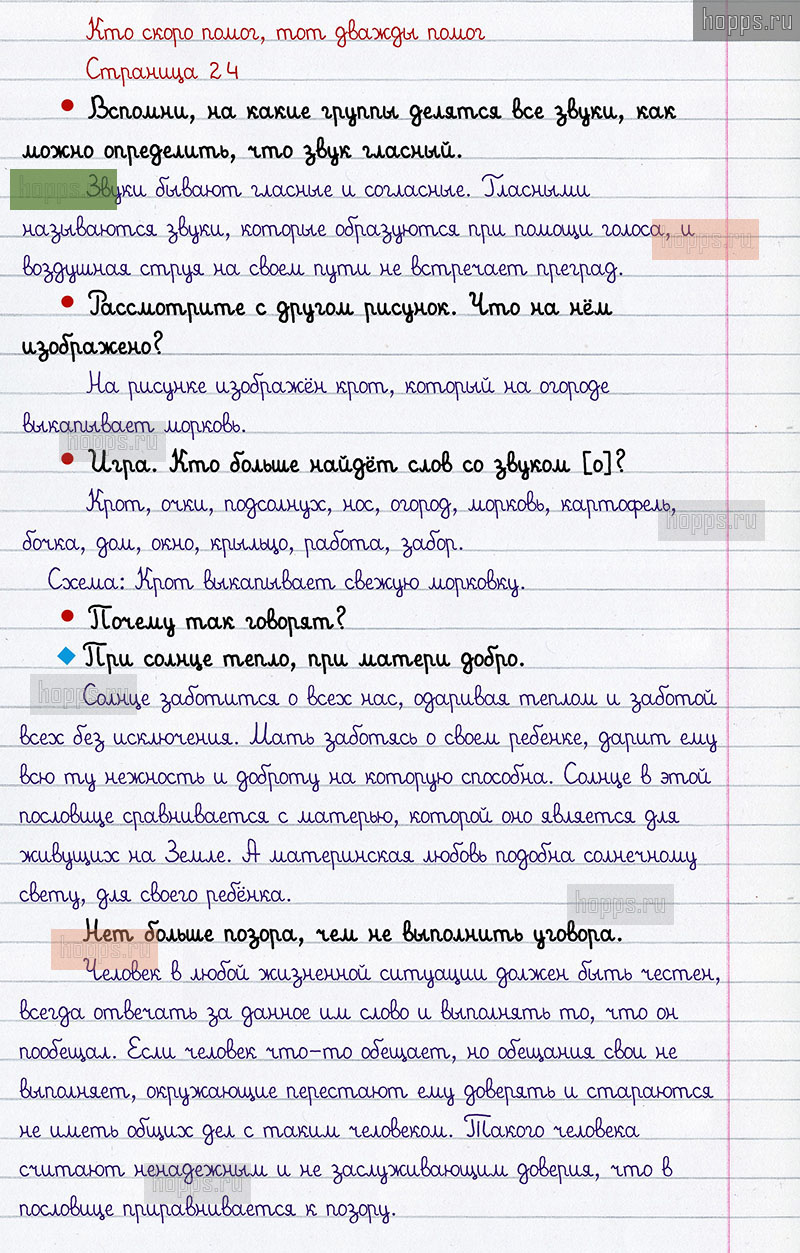 hopps.ru
Кто скоро помог, тот дважды помог
Страница 24
• Вспомни, на какие группы делятся все звуки, как
можно определить, что звук гласный.
Звуки бывают гласные и согласные. Гласными
называются звуки, которые образуются при помощи голоса, и
воздушная струя на своем пути не встречает преград.
• Рассмотрите с другом рисунок. Что на нём
изображено?
На рисунке изображён крот, который на огороде
выкапывает морковь.
• Игра. Кто больше найдёт слов со звуком [о]?
Крот, очки, подсолнух, нос, огород, морковь, картофель,
бочка, дом, окно, крыльцо, работа, забор.
Схема: Крот выкапывает свежую морковку.
• Почему так говорят?
При солнце тепло, при матери добро.
Солнце заботится о всех нас, одаривая теплом и заботой
всех без исключения. Мать заботясь о своем ребенке, дарит ему
всю ту нежность и доброту на которую способна. Солнце в этой
пословице сравнивается с матерью, которой оно является для
живущих на Земле. А материнская любовь подобна солнечному
свету, для своего ребёнка.
Нет больше позора, чем не выполнить уговора.
Человек в любой жизненной ситуации должен быть честен,
всегда отвечать за данное им слово и выполнять то, что он
пообещал. Если человек что-то обещает, но обещания свои не
выполняет, окружающие перестают ему доверять и стараются
не иметь общих дел с таким человеком. Такого человека
считают ненадежным и не заслуживающим доверия, что в
пословице приравнивается к позору.